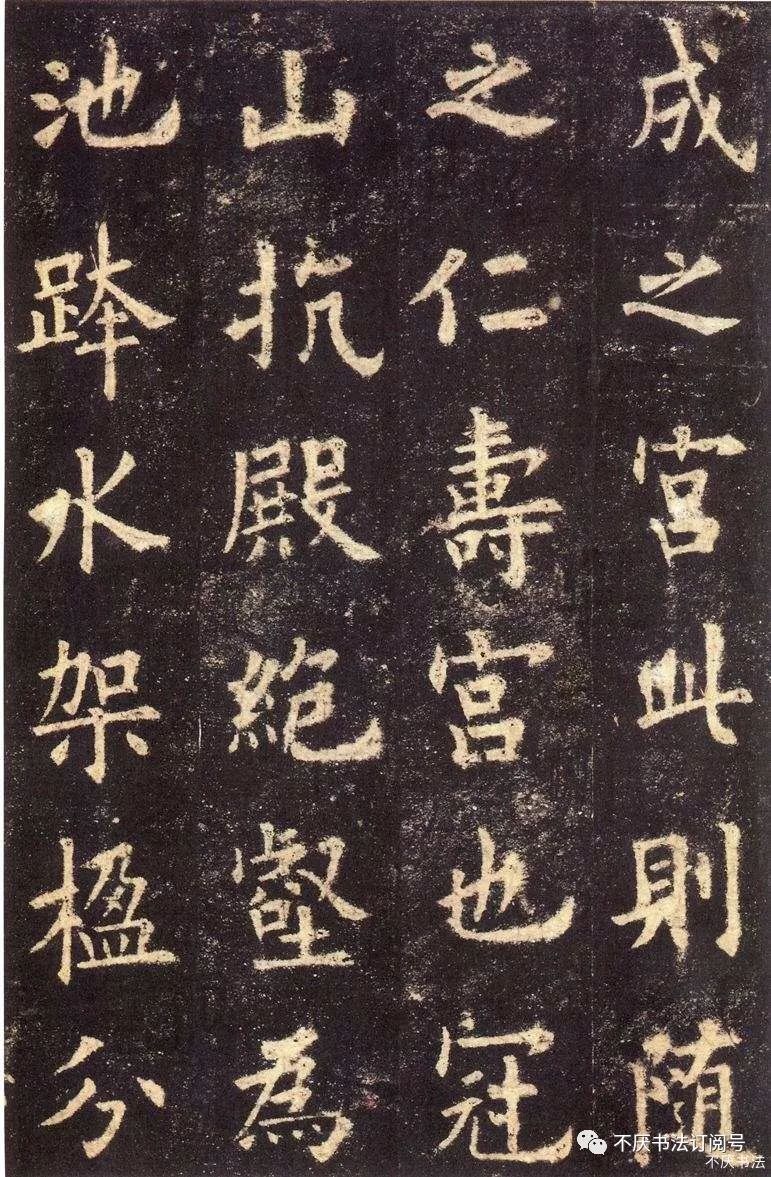 成之宫此則随
之仁壽宫也冠
山抗殿絶壑為
池跨水架楹分
不厌书法订阅号
不厌书法